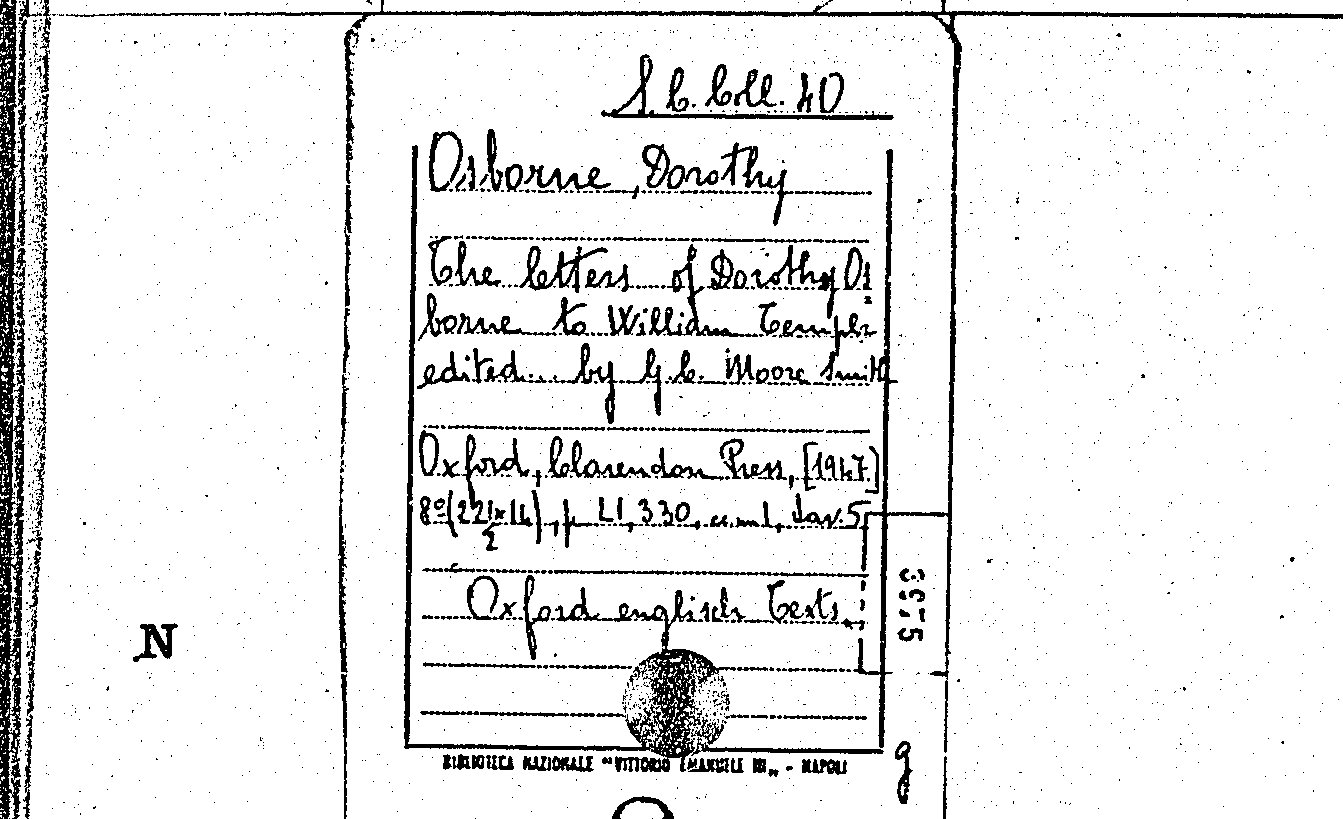 S.C. Coll. 40
Osborne, Dorothy
The letters of Dorothy Os
borne to William Temple
edited... by G.C. Moore Smith
Oxford, Clarendon Press, [1947]
8º (22 1/2 x 14), p LI, 330, tav. 5
Oxford english Texts.
N
BIBLIOTECA NAZIONALE "VITTORIO EMANUELE III„ - NAPOLI
g